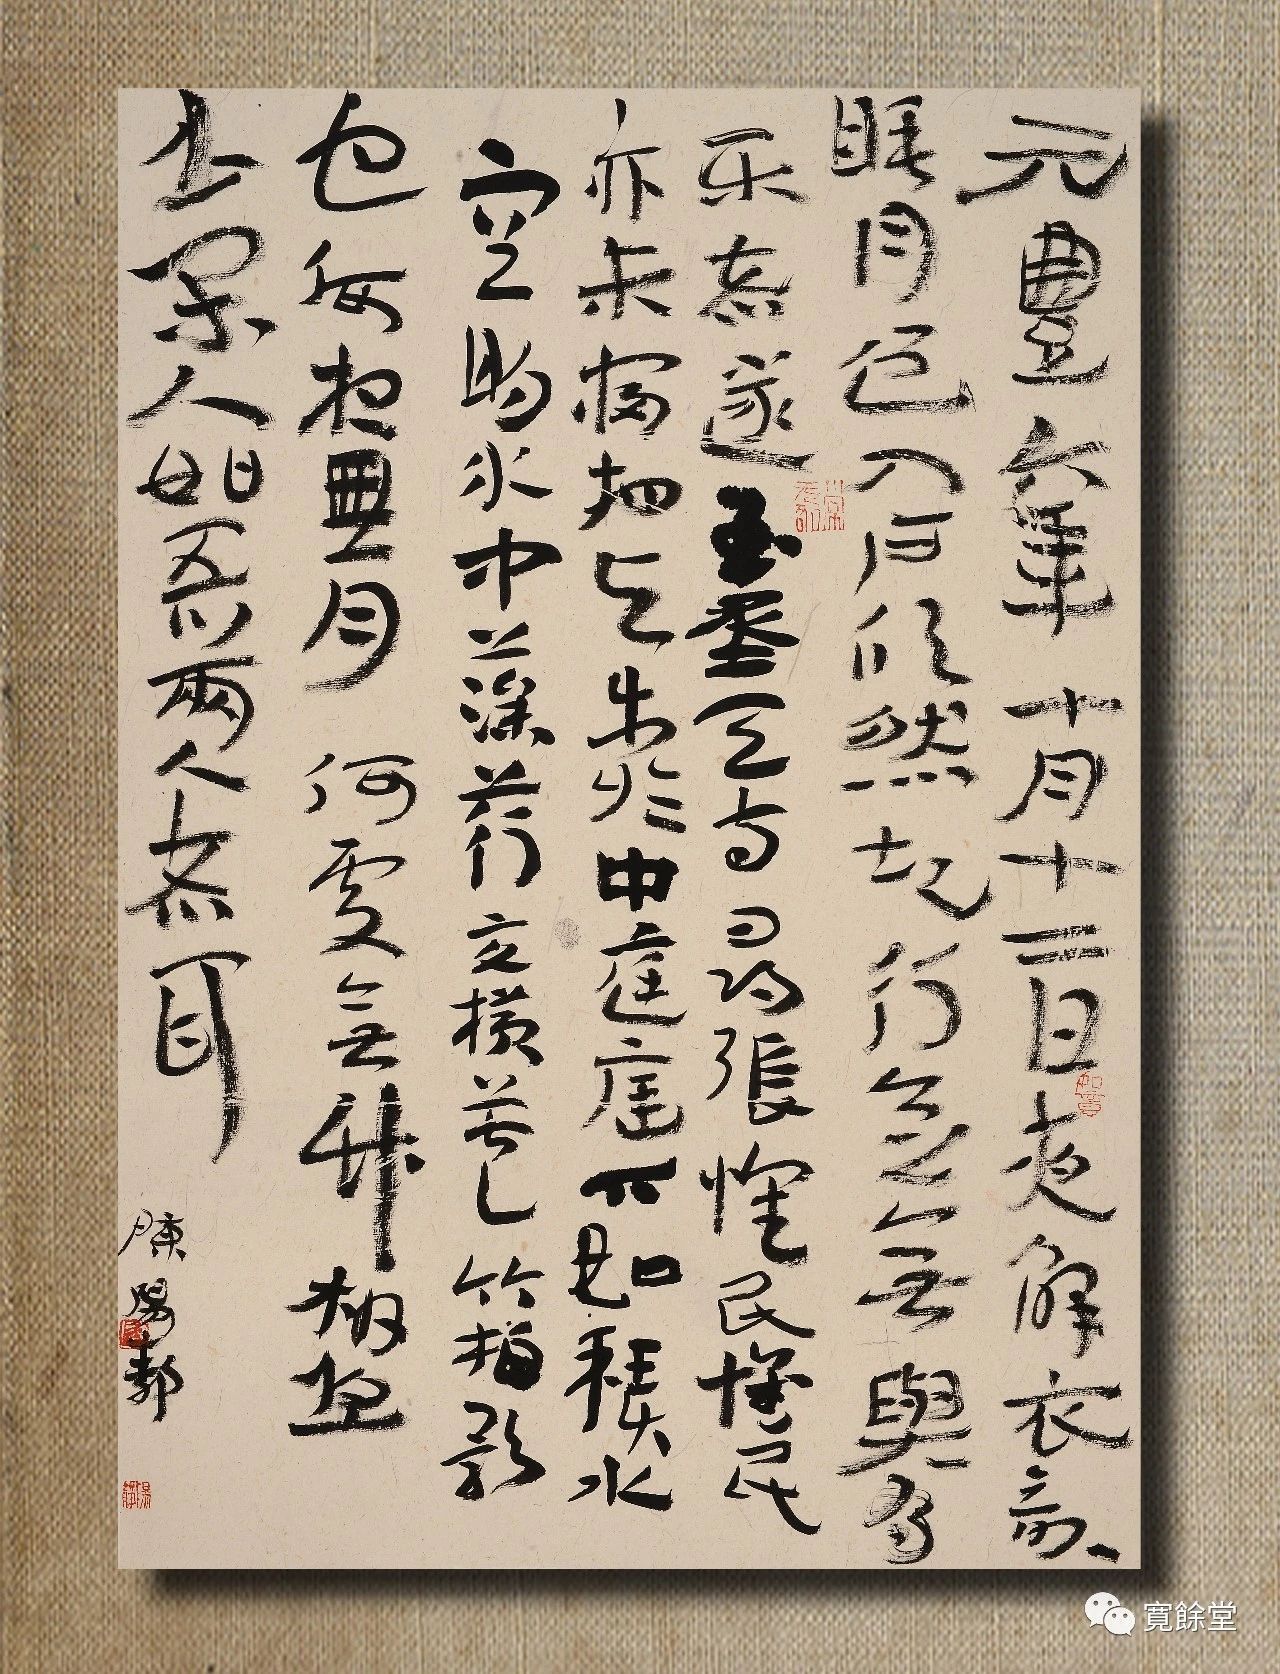 元豐六年十月十二日夜解衣欲
睡月色入戶欣然起行念無與為
樂者遂至承天寺尋張懷民懷民
亦未寢相與步於中庭庭下如積水
空明水中藻荇交橫蓋竹柏影
也何夜無月何處無竹柏但
少閑人如吾兩人者耳
陳陽靜
寬餘堂